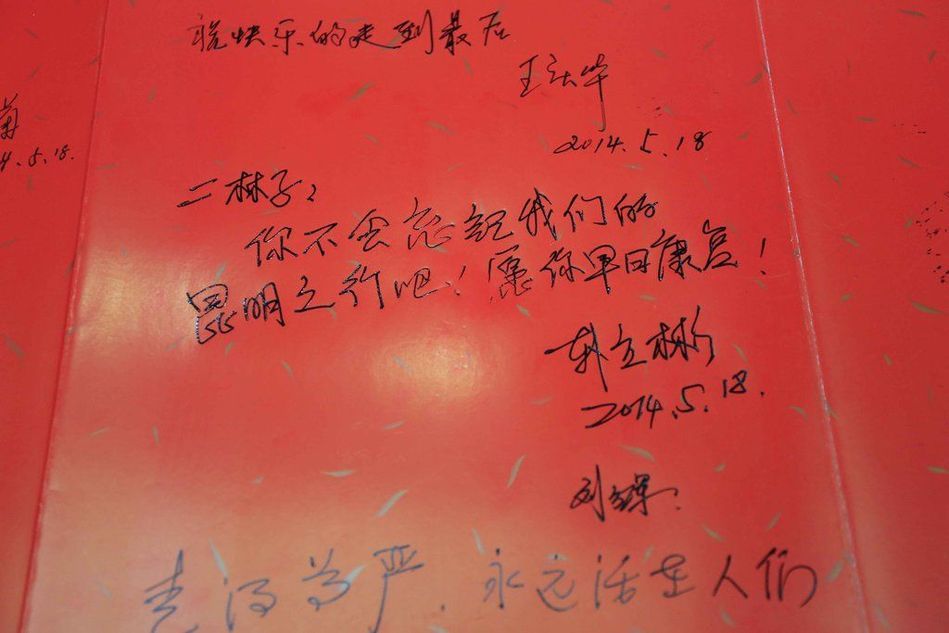 说快乐的走到最后
王
2014.5.18
4.5.18.
二林子：
你不会忘记我们的
昆明之行吧！愿你早日康复！
韩立彬
2014.5.18.
刘
走得尊严，永远活在人们